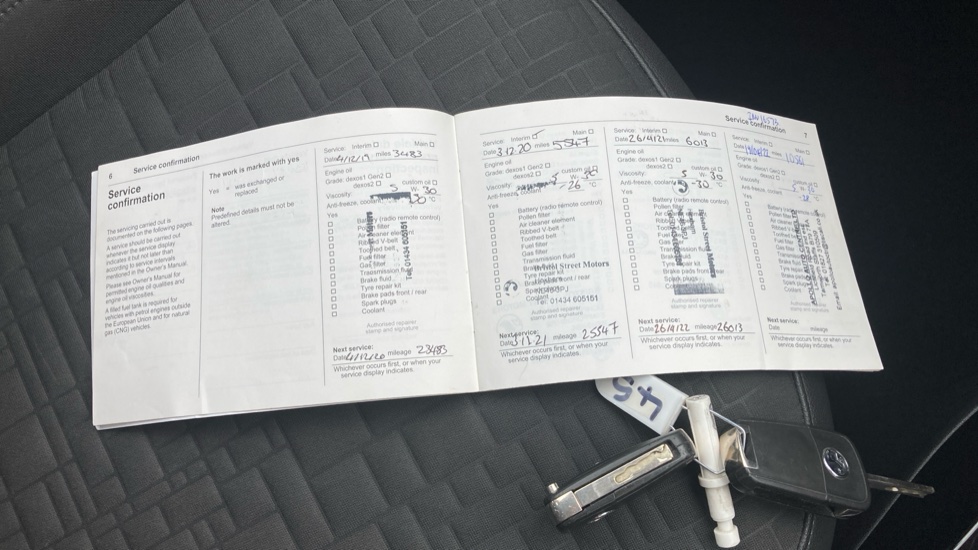 6 Service confirmation
Service
confirmation
The servicing carried out is
documented on the following pages.
A service should be carried out
whenever the service display
indicates it but not later than
according to service intervals
mentioned in the Owner's Manual.
Please see Owner's Manual for
permitted engine oil qualities and
engine oil viscosities.
A filled fuel tank is required for
vehicles with petrol engines outside
the European Union and for natural
gas (CNG) vehicles
The work is marked with yes
Yes = was exchanged or
replaced
Note
Predefined details must not be
altered.
Service: Interim Main
Date 4/12/19 miles 3483
Engine oil
Grade: dexos1 Gen2
dexos2 custom oil
Viscosity: 5 W- 30
Anti-freeze, coolant °C
Yes
Battery (radio remote control)
Pollen filter
Air cleaner element
Ribbed V-belt
Toothed belt
Fuel filter
Gas filter
Transmission fluid
Brake fluid
Tyre repair kit
Brake pads front / rear
Spark plugs
Coolant
Tel: 01434 605151
Authorised repairer
stamp and signature
Next service:
Date 4/12/20 mileage 23483
Whichever occurs first, or when your
service display indicates.
Service: Interim Main
Date 3.12.20 miles 5547
Engine oil
Grade: dexos1 Gen2
dexos2 custom oil
Viscosity: 5 W- 30
Anti-freeze, coolant - 26 °C
Yes
Battery (radio remote control)
Pollen filter
Air cleaner element
Ribbed V-belt
Toothed belt
Fuel filter
Gas filter
Transmission fluid
Tyre repair kit
Street Motors
Spark plugs
Coolant
Tel: 01434 605151
Authorised repairer
stamp and signature
Next service:
mileage 25547
Whichever occurs first, or when your
service display indicates.
Service: Interim Main
Date 26/4/21 miles 6013
Engine oil
Grade: dexos1 Gen2
dexos2 custom oil
Viscosity: 5 W- 30
Anti-freeze, coolant -30 °C
Yes
Battery (radio remote control)
Pollen filter
Ribbed V-belt
Toothed belt
Transmission fluid
Brake fluid
Tyre repair kit
Brake pads front / rear
Spark plugs
Coolant
Street Motors
Authorised repairer
stamp and signature
Next service:
Date 26/4/22 mileage 26013
Whichever occurs first, or when your
service display indicates.
Service confirmation 7
Service: Interim Main
Date miles
Engine oil
Grade: dexos1 Gen2
dexos2 custom oil
Viscosity: 5 W- 30
Anti-freeze, coolant °C
Yes
Authorised repairer
stamp and signature
Next service:
Date mileage
Whichever occurs first, or when your
service display indicates.
45